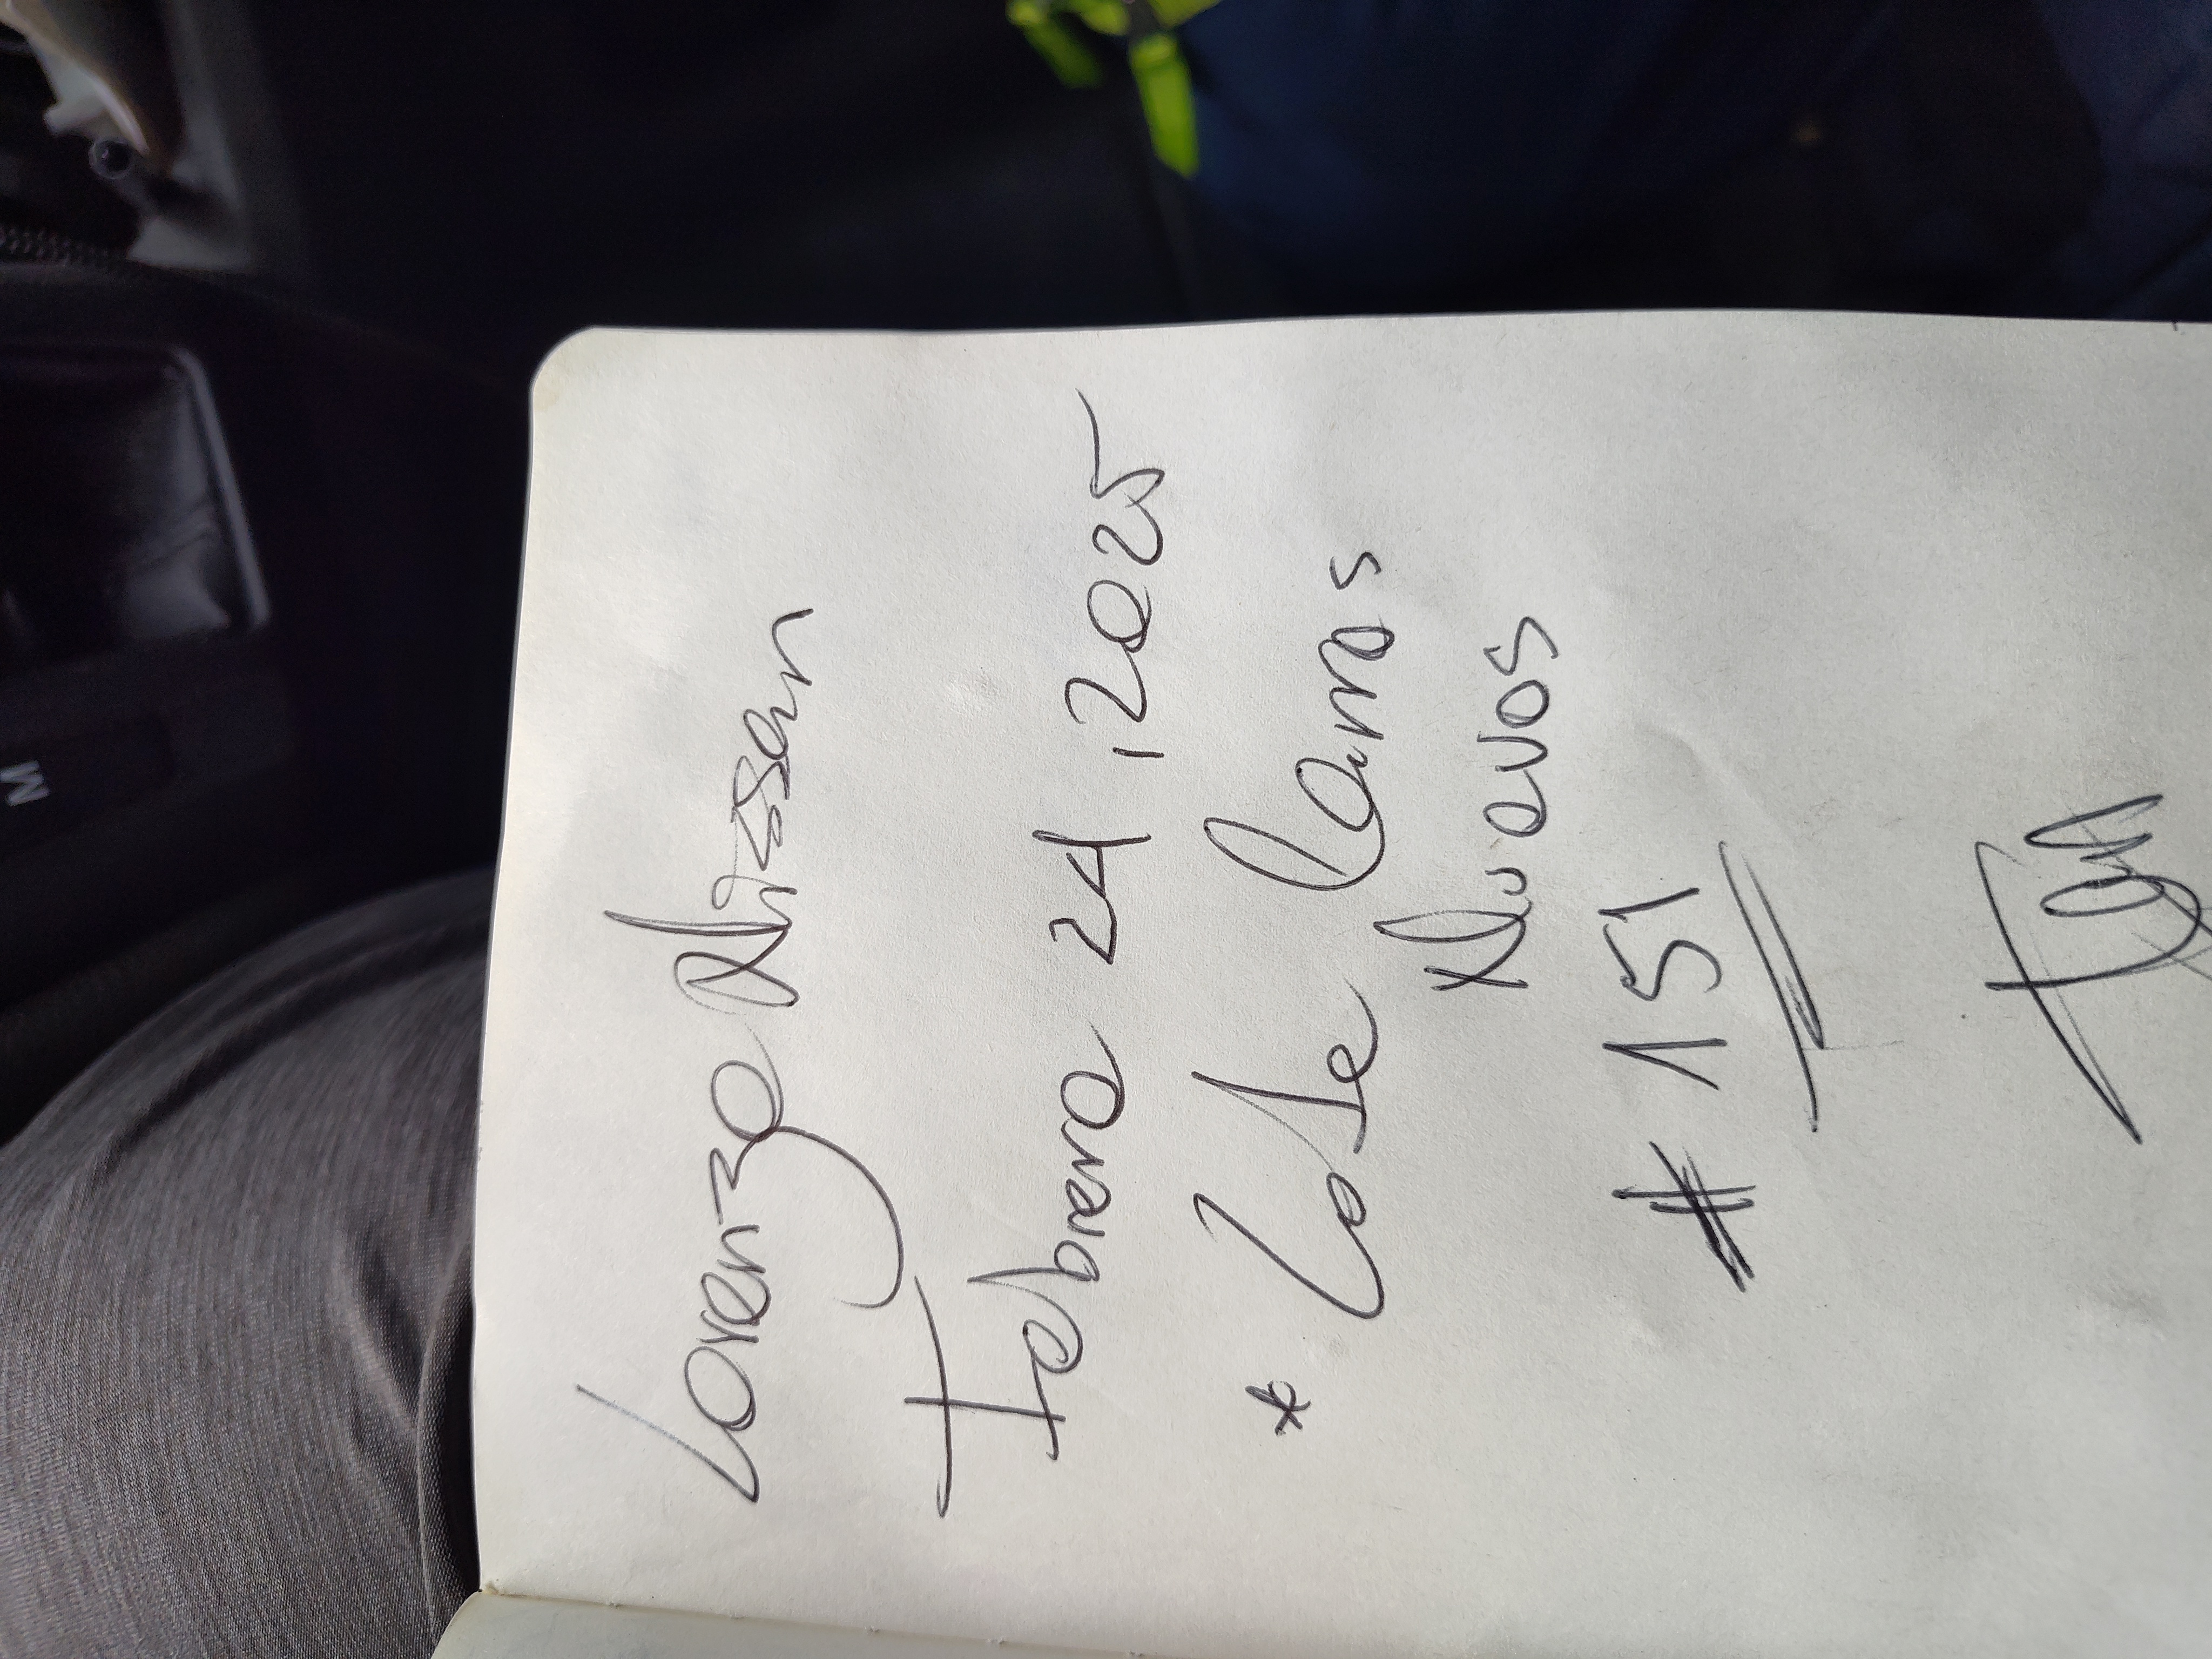 Lorenzo Nissan
Febrero 24, 2025
* Lote Carros
Nuevos
# 151
M